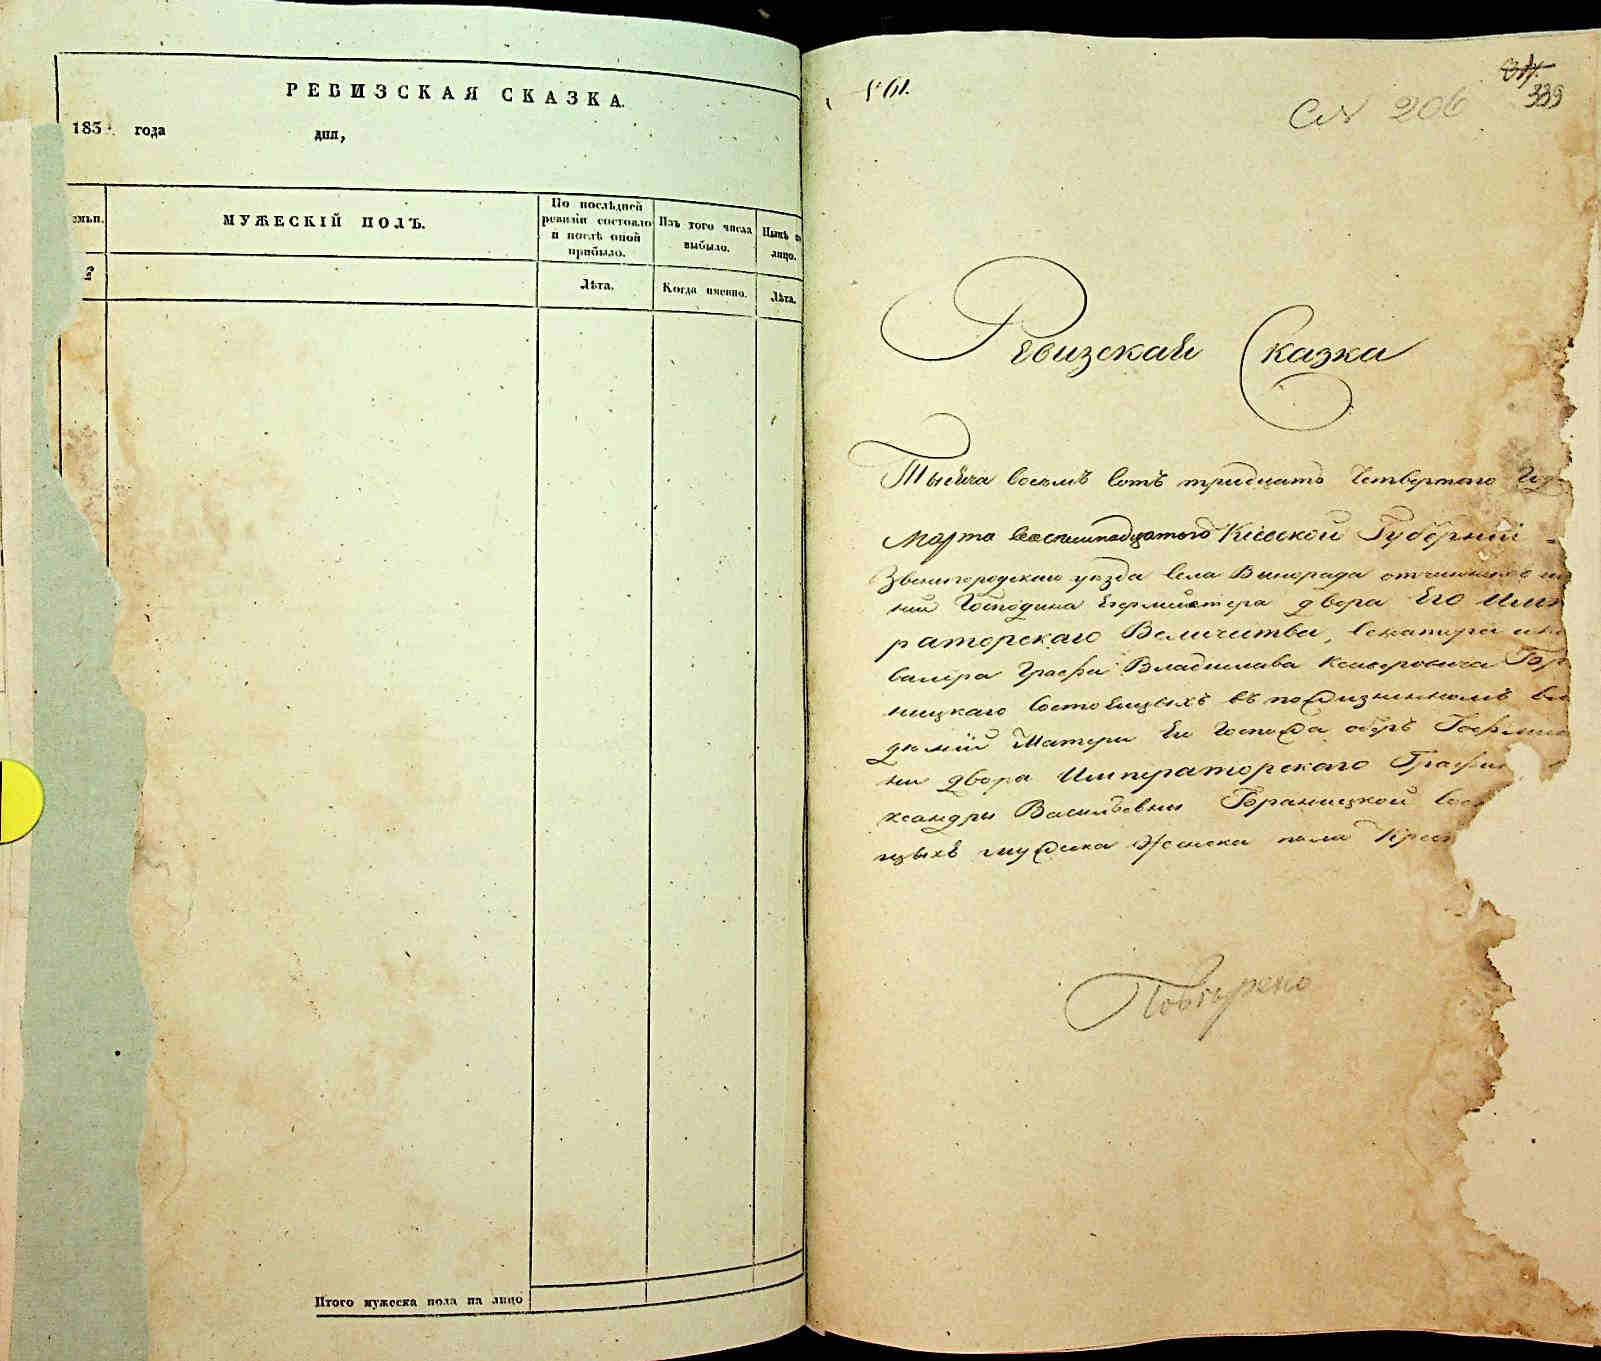 РЕВИЗСКАЯ СКАЗКА.
183 года дня,
МУЖЕСКІЙ ПОЛЪ.
По послѣдней
ревизіи состояло
и послѣ оной
прибыло.
Изъ того числа
выбыло.
Нынѣ
лицо.
Лѣта.
Когда именно.
Лѣта.
Итого мужеска пола на лицо
№ 61.
339
206
Ревизская Сказка
Тысяча восемъ сотъ тридцать Четвертого
Марта восемнадцатого Кіевской Губерніи
Звенигородскаго уезда села Винограда
Господина Егермистера двора Его Импе
раторскаго Величества, сенатора и ка
валера Графа Владислава Ксаверовича Бра
ницкаго состоящыхъ въ пожизненномъ вла
деніи Матери Ея Госпожа оберъ Гофмист
ны двора Императорскаго Графин
ксандры Васильевны Браницкой сос
щыхъ мужска женска пола Крес
Поверено